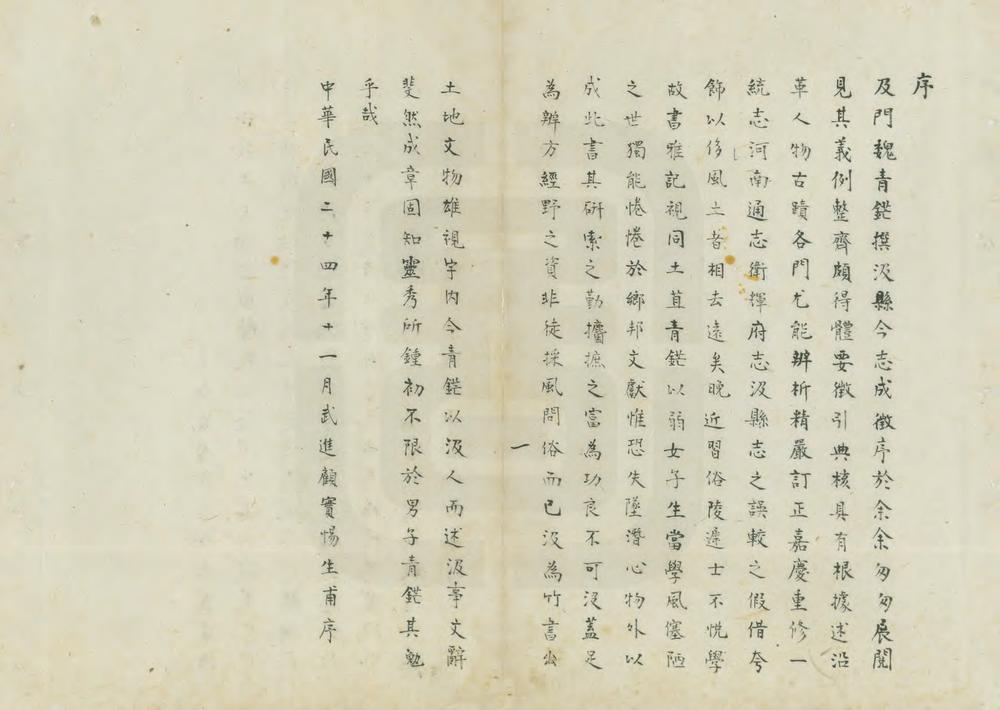 序
及門魏青鋩撰汲縣今志成徵序於余余匆匆展閱
見其義例整齊頗得體要徵引典核具有根據述沿
革人物古蹟各門尤能辨析精嚴訂正嘉慶重修一
統志河南通志衛輝府志汲縣志之誤較之假借夸
飾以侈風土者相去遠矣晚近習俗陵遲士不悅學
故書雅記視同土苴青鋩以弱女子生當學風僿陋
之世獨能惓惓於鄉邦文獻惟恐失墜潛心物外以
成此書其研索之勤攟摭之富為功良不可沒蓋足
為辨方經野之資非徒採風問俗而已汲為竹書出
一
土地文物雄視宇內今青鋩以汲人而述汲事文辭
斐然成章固知靈秀所鍾初不限於男子青鋩其勉
乎哉
中華民國二十四年十一月武進顧實惕生甫序